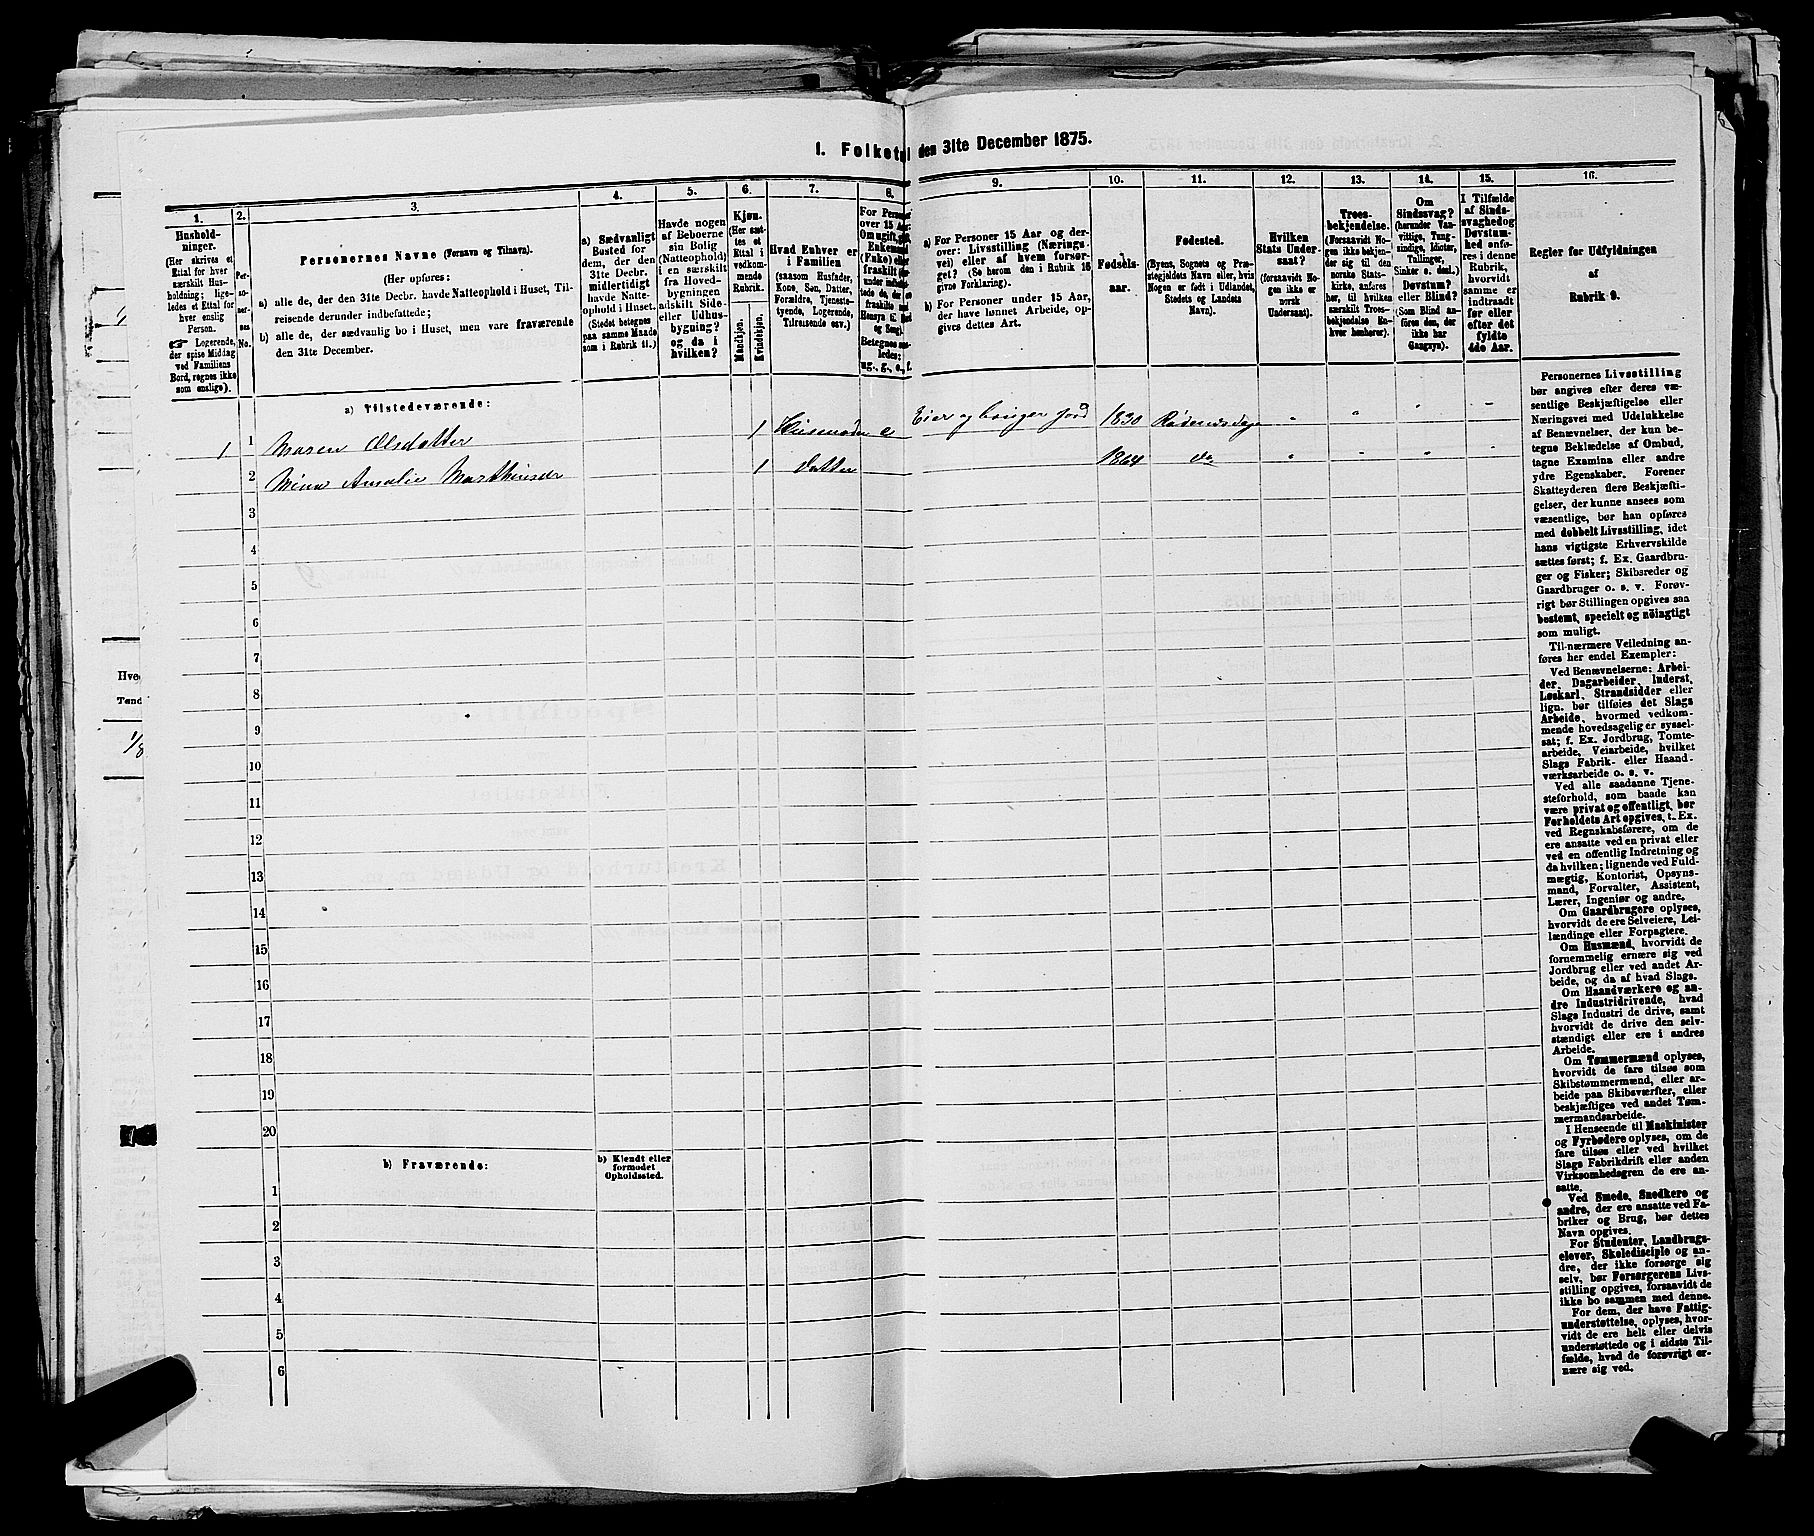 I. Folketal den 31te December 1875.
1.
2.
3.
4.
5.
6.
7.
8.
9.
10.
11.
12.
13.
14.
15.
16.
Hushold-
ninger.
(Her skrives et
Ettal for hver
særskilt Hus-
holdning; lige-
ledes et Ettal for
hver enslig
Person.
☞ Logerende,
der spise Middag
ved Familiens
Bord, regnes ikke
som enslige).
Per-
so-
ner-
nes
No.
Personernes Navne (Fornavn og Tilnavn).
(Her opføres:
a) alle de, der den 31te Decbr. havde Natteophold i Huset, Til-
reisende derunder indbefattede;
b) alle de, der sædvanlig bo i Huset, men vare fraværende
den 31te December.
a) Sædvanligt
Bosted for
dem, der den
31te Decbr.
midlertidigt
havde Natte-
ophold i Huset.
(Stedet betegnes
paa samme Maade
som i Rubrik 11.)
Havde nogen
af Beboerne
sin Bolig
(Natteophold)
i en særskilt
fra Hoved-
bygningen
adskilt Side-
eller Udhus-
bygning?
og da i
hvilken?
Kjøn.
(Her sæt-
tes et
Ettal i
vedkom-
mende
Rubrik.
Mandkjøn.
Kvindekjøn.
Hvad Enhver er
i Familien
(saasom Husfader,
Kone, Søn, Datter,
Forældre, Tjeneste-
tyende, Logerende,
Tilreisende osv.)
For Personer
over 15 Aar:
Om ugift, gift,
Enkemand
(Enke) eller
fraskilt
Betegnes saa-
ledes:
ug., g., e., f.
a) For Personer 15 Aar og der-
over: Livsstilling (Nærings-
vei) eller af hvem forsør-
get? (Se herom den i Rubrik 16
givne Forklaring).
b) For Personer under 15 Aar,
der have lønnet Arbeide, op-
gives dettes Art.
Fødsels-
aar.
Fødested.
(Byens, Sognets og Præ-
stegjeldets Navn eller, hvis
Nogen er født i Udlandet,
Stedets og Landets
Navn).
Hvilken
Stats Under-
saat?
(forsaavidt No-
gen ikke er
norsk
Undersaat).
Troes-
bekjendelse.
(Forsaavidt No-
gen ikke bekjen-
der sig til den
norske Stats-
kirke, anføres
her, til hvilken
særskilt Troes-
bekjendelse En-
hver henhører).
Om
Sindssvag?
(herunder Van-
vittige, Tung-
sindige, Idioter,
Tullinger,
Sinker o. desl.)
Døvstum?
eller Blind?
(Som Blind an-
føres den, der
ikke har
Gangsyn).
I Tilfælde
af Sinds-
svaghed og
Døvstum-
hed anfø-
res i denne
Rubrik,
hvorvidt
samme er
indtraadt
før eller
efter det
fyldte
4de Aar.
Regler for Udfyldningen
af
Rubrik 9.
a) Tilstedeværende:
1 1 Maren Olsdatter 1 Husmoder e Eier og bruger jord 1830 " " " "
2 Mina Amalie 1 datter 1864 do " " " "
3
4
5
6
7
8
9
10
11
12
13
14
15
16
17
18
19
20
b) Fraværende:
b) Kjendt eller
formodet
Opholdssted.
1
2
3
4
5
6
Personernes Livsstilling
bør angives efter deres væ-
sentlige Beskjæftigelse eller
Næringsvei med Udelukkelse
af Benævnelser, der kun be-
tegne Beklædelse af Ombud,
tagne Examina eller andre
ydre Egenskaber. Forener
Skatteyderen flere Beskjæfti-
gelser, der kunne ansees som
væsentlige, bør han opføres
med dobbelt Livsstilling, idet
hans vigtigste Erhvervskilde
sættes først; f. Ex. Gaardbru-
ger og Fisker; Skibsreder og
Gaardbruger o. s. v. Forøv-
rigt bør Stillingen opgives saa
bestemt, specielt og nöiagtigt
som muligt.
Til nærmere Veiledning an-
føres her endel Exempler:
Ved Benævnelserne: Arbei-
der, Dagarbeider, Inderst,
Løskarl, Strandsidder eller
lign. bør tilføies det Slags
Arbeide, hvormed vedkom-
mende hovedsagelig er syssel-
sat; f. Ex. Jordbrug, Tomte-
arbeide, Veiarbeide, hvilket
Slags Fabrik- eller Haand-
værksarbeide o. s. v.
Ved alle saadanne Tjene-
steforhold, som baade kan
være privat og offentligt, bør
Forholdets Art opgives, t. Ex.
ved Regnskabsførere, om de
ere ansatte ved en privat eller
ved en offentlig Indretning og
da hvilken; lignende ved Fuld-
mægtig, Kontorist, Opsyns-
mand, Forvalter, Assistent,
Lærer, Ingeniør og andre.
Om Gaardbrugere oplyses,
hvorvidt de ere Selveiere, Lei-
lændinge eller Forpagtere.
Om Husmænd, hvorvidt de
fornemmelig ernære sig ved
Jordbrug eller ved andet Ar-
beide, og da af hvad Slags.
Om Haandværkere og an-
dre Industridrivende, hvad
Slags Industri de drive, samt
hvorvidt de drive den selv-
stændigt eller ere i andres
Arbeide.
Om Tømmermænd oplyses,
hvorvidt de fare tilsøs som
Skibstømmermænd, eller ar-
beide paa Skibsværfter, eller
beskjæftiges ved andet Tøm-
mermandsarbeide.
I Henseende til Maskinister
og Fyrbødere oplyses, om de
fare tilsøs eller ved hvilket
Slags Fabrikdrift eller anden
Virksomhedsgren de ere an-
satte.
Ved Smede, Snedkere og
andre, der ere ansatte ved Fa-
briker og Brug, bør dettes
Navn opgives.
For Studenter, Landbrugs-
elever, Skoledisciple og an-
dre, der ikke forsørge sig
selv, bør Forsørgerens Livs-
stilling opgives, forsaavidt de
ikke bo sammen med denne.
For dem, der have Fattig-
understøttelse, oplyses, hvor-
vidt de ere helt eller delvis
understøttede og i sidste Til-
fælde, hvad de forøvrigt er-
nære sig ved.